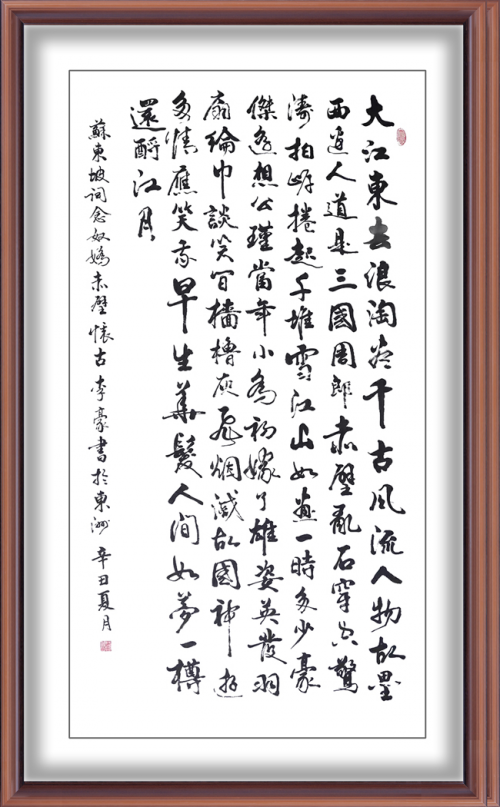 大江東去浪淘盡千古風流人物故壘
西邊人道是三國周郎赤壁亂石穿空驚
濤拍岸捲起千堆雪江山如畫一時多少豪
傑遙想公瑾當年小喬初嫁了雄姿英發羽
扇綸巾談笑間檣櫓灰飛烟滅故國神遊
多情應笑我早生華髮人間如夢一樽
還酹江月
蘇東坡詞念奴嬌赤壁懷古 李豪書於東洲 辛丑夏月